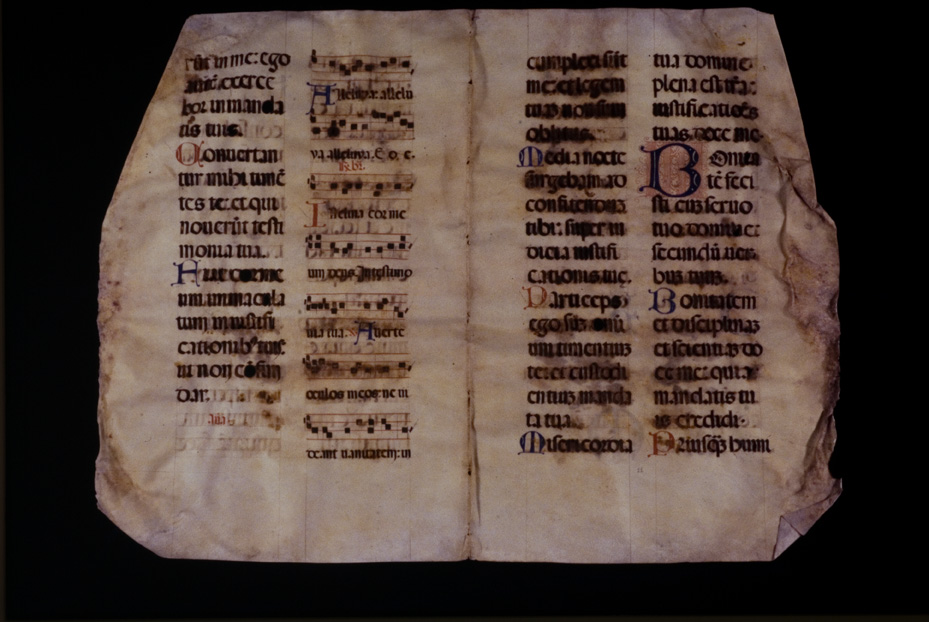 rūt in me: ego
autē exerce
bor in manda
tis tuis.
Conuertan
tur mihi timē
tes te: et qui
nouerūt testi
monia tua.
Fiat cor me
um immacula
tum in iustifi
cationibꝰ tuis:
ut non cōfun
dar.
Alleluia: allelu
ya alleluya. E. o. e.
Inclina cor me
um deus. In testimo
nia tua. Auerte
oculos meos: ne ui
deant uanitatem: in
complexi sūt
me: et legem
tuaz non sum
oblitus.
Media nocte
surgebam ad
confitenduz
tibi: super iu
dicia iustifi
cationis tue.
Particeps
ego suz omniū
timentiuz
te: et custodi
entiuz manda
ta tua.
Misericordia
tua domine
plena est tr̄a:
iustificatiōes
tuas doce me.
Bonita
tē feci
sti cuz seruo
tuo domine:
secundū uer
buz tuuz.
Bonitatem
et disciplinaz
et scientiaz do
ce me: quia
mandatis tu
is credidi.
Priusqꝫ humi